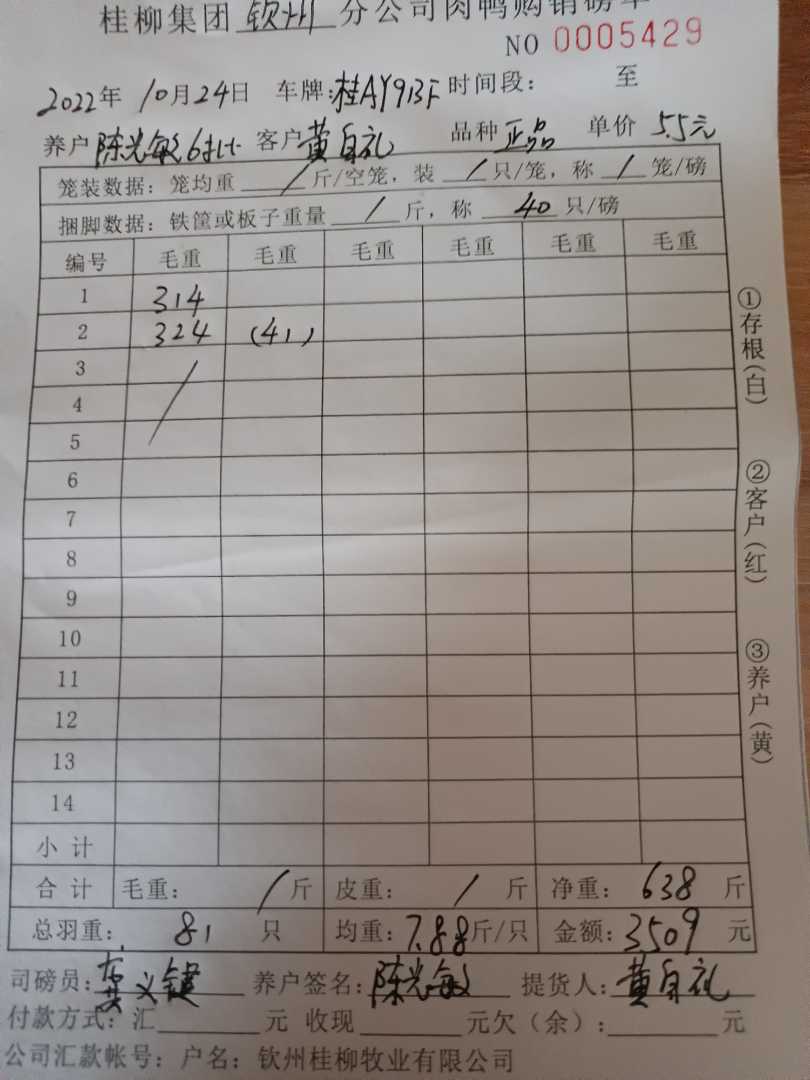 桂柳集团 钦州 分公司肉鸭购销磅单
NO 0005429
2022年 10月24日 车牌:桂AY913F 时间段: 至
养户 陈光敏 客户 黄自礼 品种 正品 单价 5.5元
笼装数据: 笼均重 / 斤/空笼, 装 / 只/笼, 称 / 笼/磅
捆脚数据: 铁筐或板子重量 / 斤, 称 40 只/磅
编号 毛重 毛重 毛重 毛重 毛重 毛重
1 314
2 324 (41)
3 /
4
5
6
7
8
9
10
11
12
13
14
小计
合计 毛重: / 斤 皮重: / 斤 净重: 638 斤
总羽重: 81 只 均重: 7.88斤/只 金额: 3509 元
司磅员: 义键 养户签名: 陈光敏 提货人: 黄自礼
付款方式: 汇 元 收现 元欠(余): 元
公司汇款帐号: 户名: 钦州桂柳牧业有限公司
①存根(白)
②客户(红)
③养户(黄)